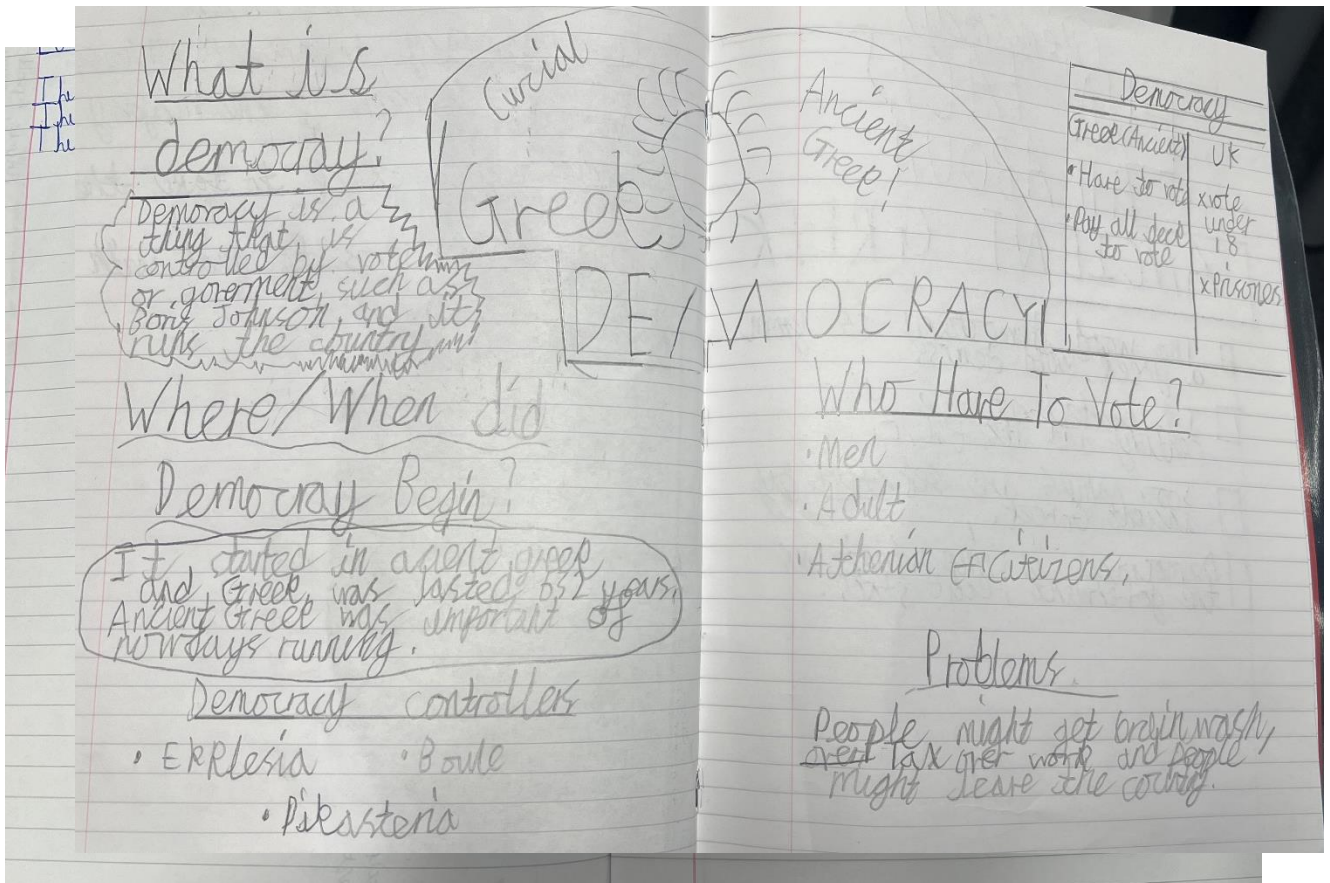 The
The
The
What is
democray?
Demoracy is a
thing that is
controlled by vote
or goverment, such as
Boris Johnson, and it
runs the country
Where/When did
Democray Begin?
It started in acient greek
and Greek was lasted 652 years,
Ancient Greek was important of
nowdays running.
Democracy controllers
• Ekklesia • Boule
• Dikasteria
Curcial
Greek
Ancient
Greek!
DEMOCRACY!
Democracy
Greek (Ancient) UK
• Have to vote x vote
under
18
• Pay all deck
to vote
x Prisoners
Who Have To Vote?
• Men
• Adult
• Athenian Citizens,
Problems
People might get brain wash,
tax over work and people
might leave the country.